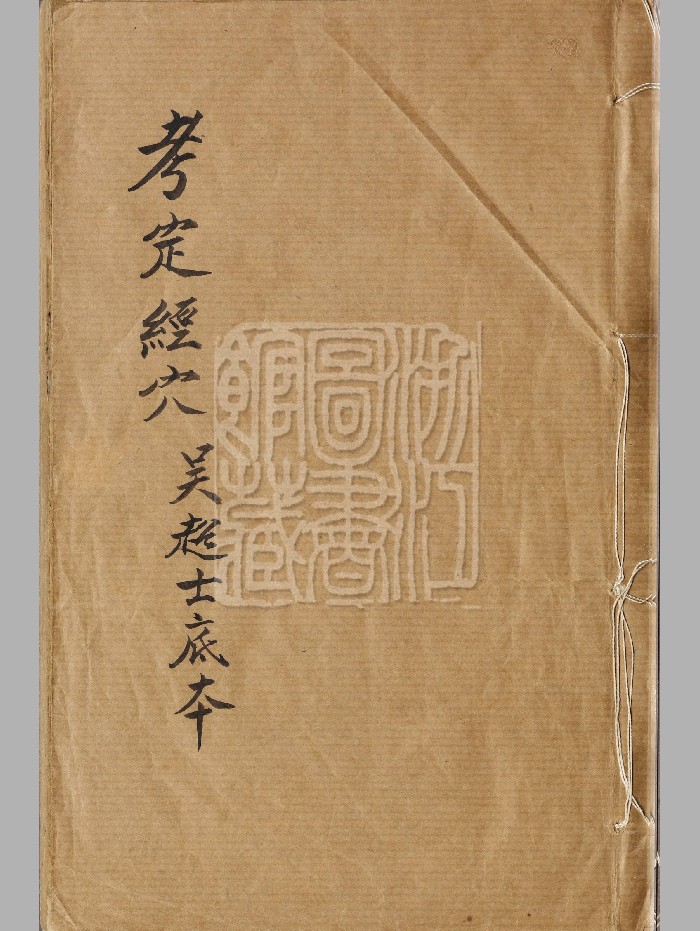 考定經穴
吴超士底本
浙江
圖書
館藏